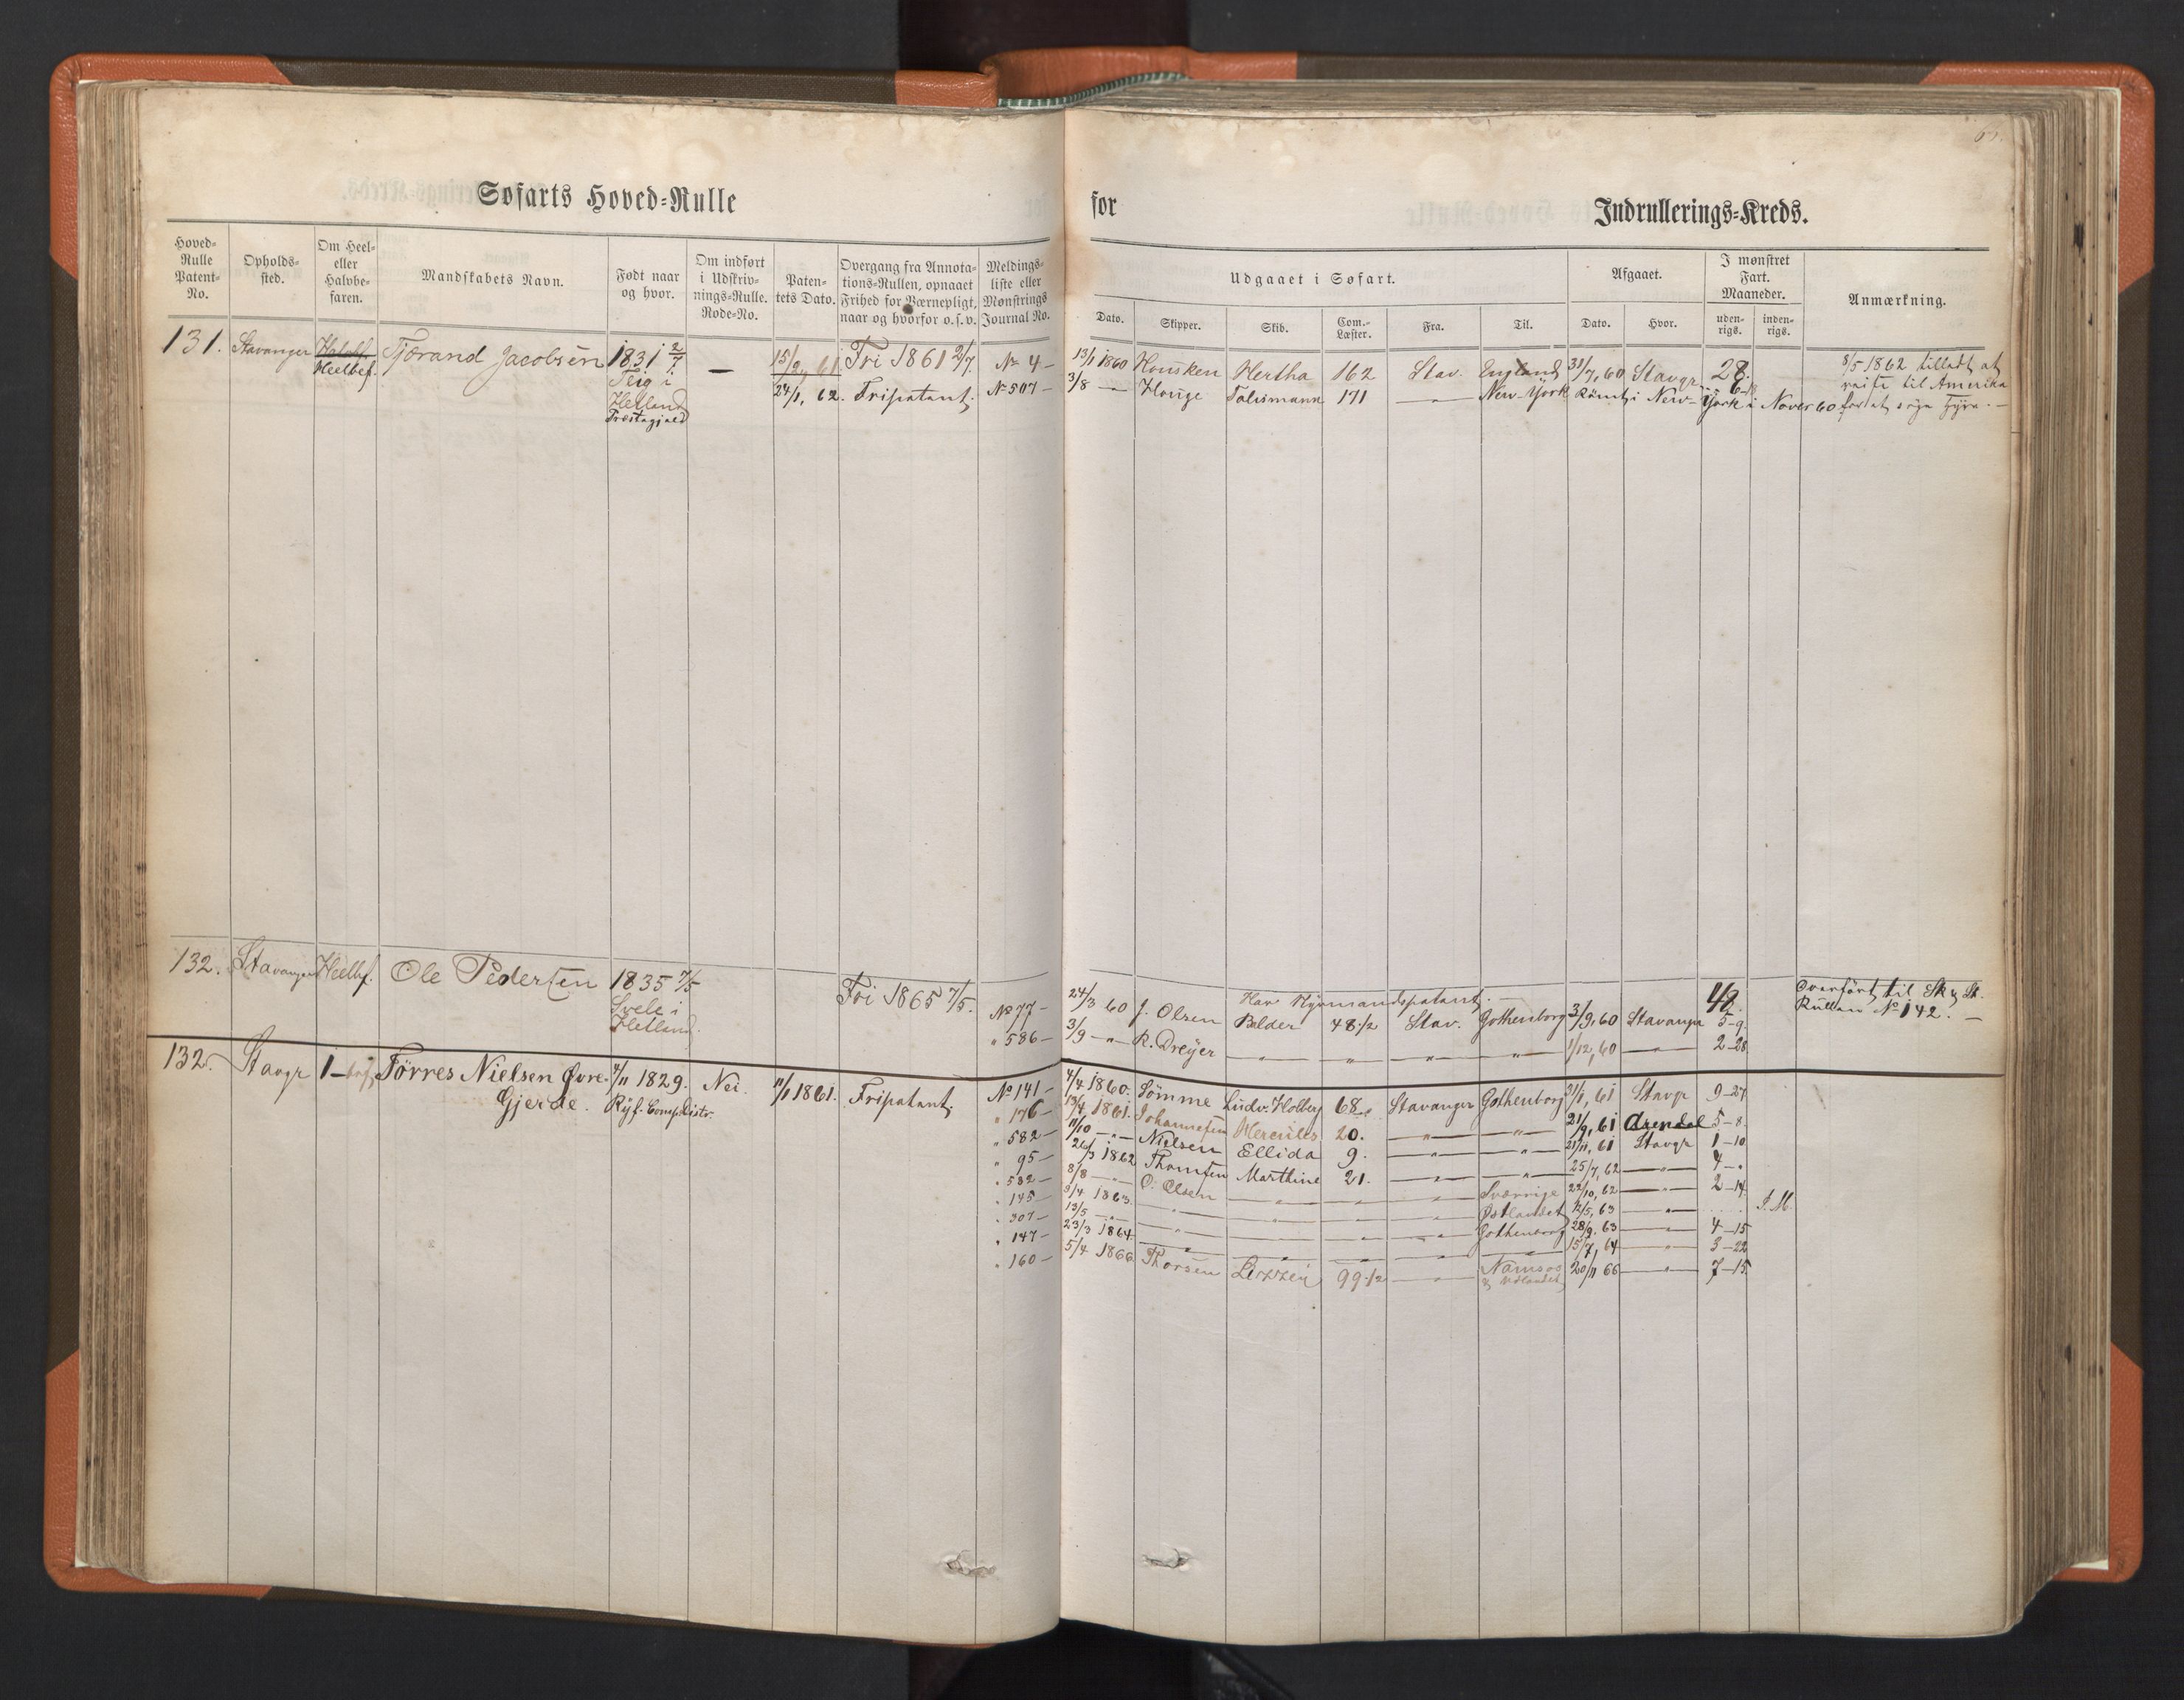 Søfarts Hoved-Rulle
for Indrullerings-Kreds.
Hoved-Rulle Patent-No.
Opholds-sted.
Om Heel- eller Halvbe-faren.
Mandskabets Navn.
Født naar og hvor.
Om indført i Udskriv-nings-Rulle. Rode-No.
Paten-tets Dato.
Overgang fra Annota-tions-Rullen, opnaaet Frihed for Værnepligt, naar og hvorfor o. s. v.
Meldings-liste eller Mønstrings Journal No.
Udgaaet i Søfart.
Dato. Skipper. Skib. Com.-Læster. Fra. Til.
Afgaaet.
Dato. Hvor.
I mønstret Fart. Maaneder.
uden-rigs. inden-rigs.
Anmærkning.
131. Stavanger Halvbf. Tjørand Jacobsen 1831 2/7 — 15/2, 61 Fri 1861 2/7. No 4 — 13/1 1860 Housken Hertha 162 Stav. England 31/7, 60 Stavgr 28. 8/5 1862 tilladt at
Heelbef. Teig i 24/1, 62. Fripatent. No 507 — 3/8 — Houge Talismann 171 — New-York Rømt i New-York i Novbr 60 reise til Amerika
Hetland for at søge Hyre. —
Præstegjeld
132. Stavanger Heelbf. Ole Pedersen 1835 7/5 Fri 1865 7/5. Har Styrmandspatent. — 48. Overført til Sk & St.
Svele i No 77 — 24/3 60 J. Olsen Balder 48 1/2 Stav. Gothenborg 3/9, 60 Stavanger 5-9 Rullen No 142. —
Hetland. " 586 — 3/9 — " — R. Dreyer — " — — " — — " — — " — 1/12, 60 — 2-28
132. Stavgr 1 — Tørres Nielsen Øvre 4/11 1829. Nei. 11/1 1861. Fripatent. No 141 — 4/4 1860. Sømme Ludv. Holberg 68 Stavanger Gothenborg 31/1, 61 Stavgr 9-27
Gjerde. Ryf. Comp. Distr. " 176 — 13/4 1861. Johannesen Hercules 20. — " — — " — 21/9, 61 Arendal 5-8.
" 582 — 11/10 — " — Nielsen Ellida 9. — " — — " — 21/11, 61 Stavgr 1-10
" 95 — 26/3 1862 Thomsen Marthine 21. — " — — " — 25/7, 62 — " — 4 - "
" 532 — 8/8 — " — O. Olsen — " — — " — — " — Sverrige 22/10, 62 — " — 2-14
" 145 — 8/4 1863. — " — — " — — " — — " — Østlandet 12/5, 63 — " — J. M.
" 307 — 13/5 — " — — " — — " — — " — — " — Gothenborg 28/9. 63 — " — 4-15
" 147 — 23/3 1864. — " — — " — — " — — " — — 15/7, 64 — " — 3-22
" 160 — 5/4 1866. Thorsen 99 1/2 — Namsos 20/11 66 — " — 7-15
& Udlandet